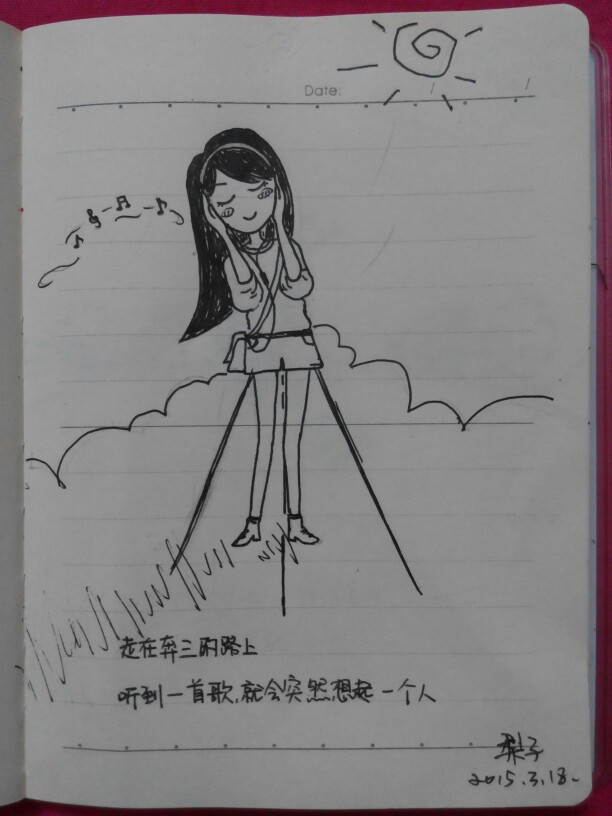 Date: / /
走在奔三的路上
听到一首歌,就会突然想起一个人
梨子
2015.3.18.